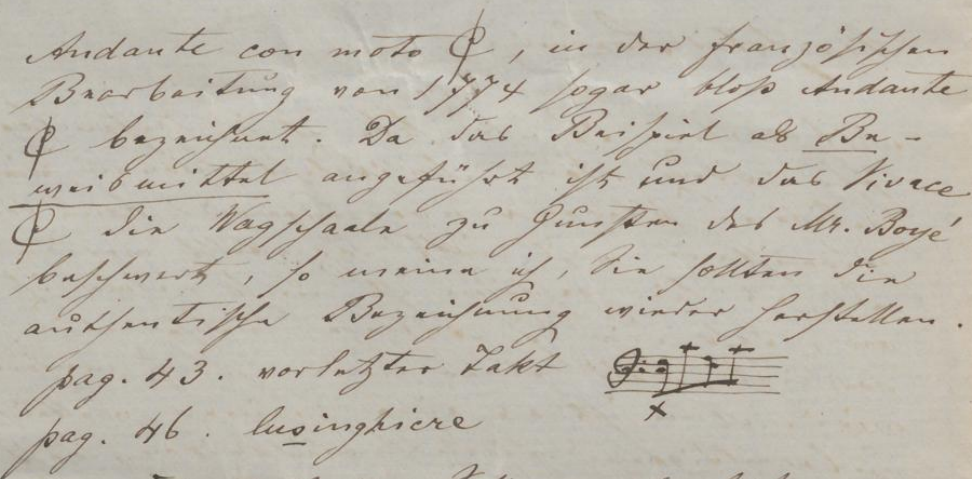 Andante con moto 𝄵, in der französischen
Bearbeitung von 1774 sogar bloß Andante
𝄵 bezeichnet. Da das Beispiel als Be-
weismittel angeführt ist und das Vivace
𝄵 die Wagschaale zu Gunsten des Mr. Boyé
beschwert, so meine ich, Sie sollten die
authentische Bezeichnung wieder herstellen.
pag. 43. vorletzter Takt
x
pag. 46. lusinghiere